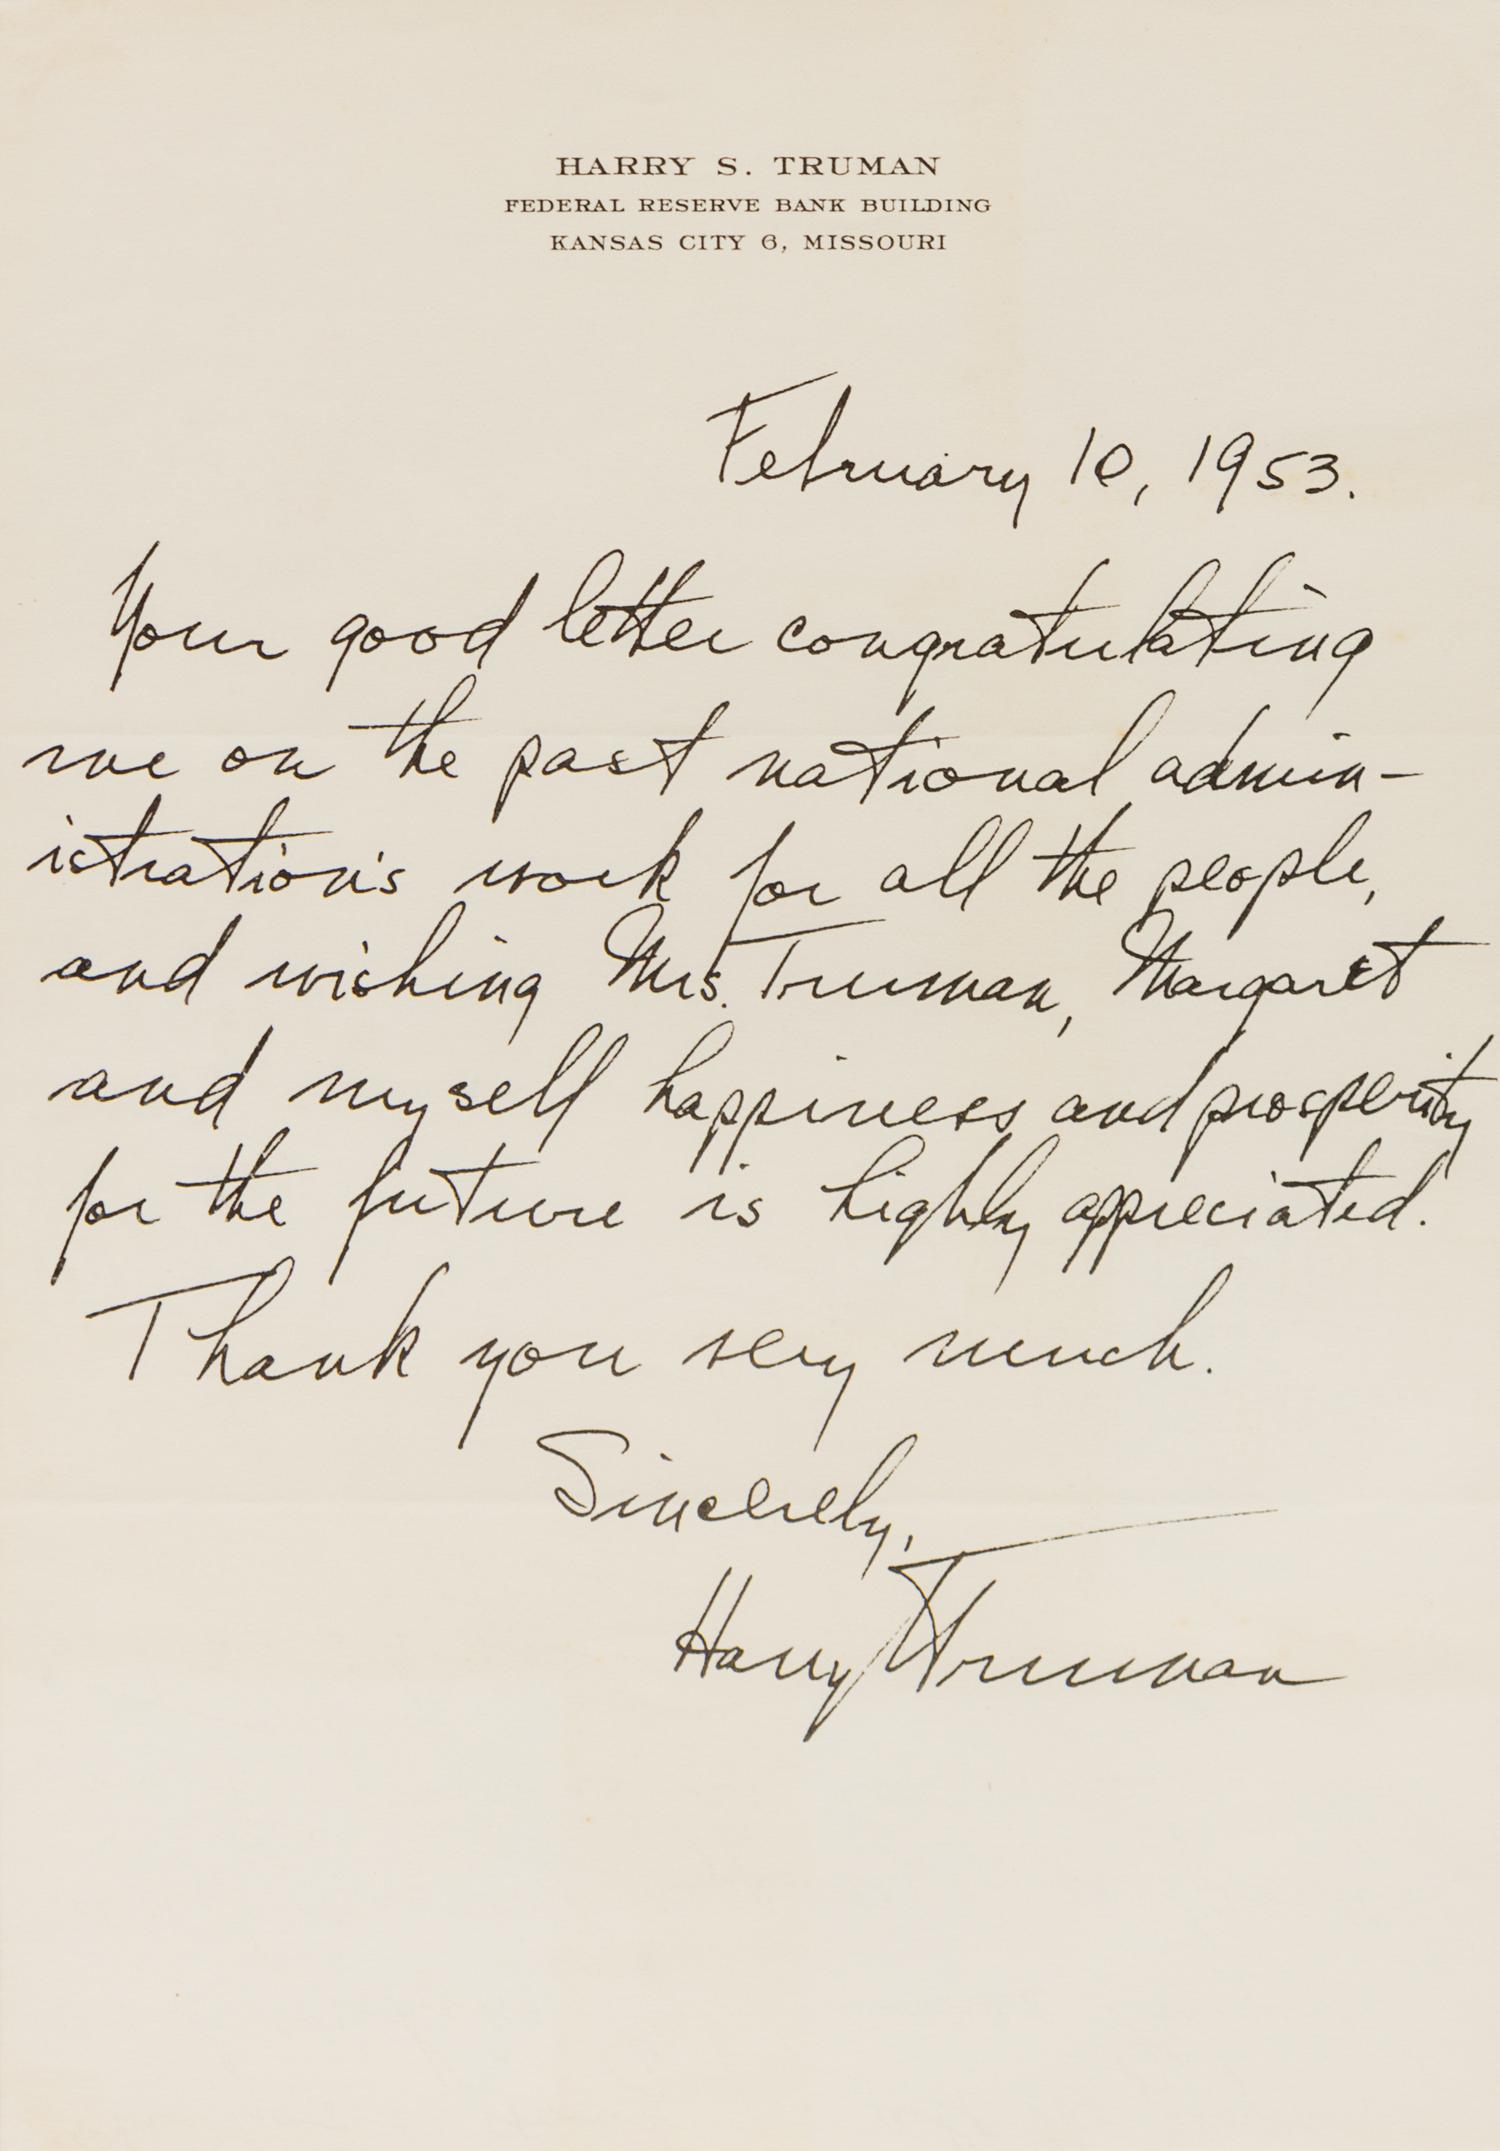 HARRY S. TRUMAN
FEDERAL RESERVE BANK BUILDING
KANSAS CITY 6, MISSOURI
February 10, 1953.
Your good letter congratulating
me on the past national admin-
istration's work for all the people,
and wishing Mrs. Truman, Margaret
and myself happiness and prosperity
for the future is highly appreciated.
Thank you very much.
Sincerely,
Harry S Truman